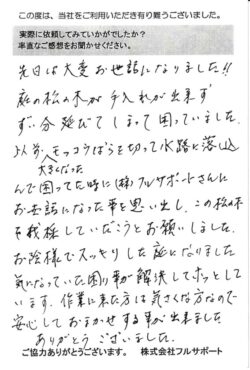 この度は、当社をご利用いただき有り難うございました。
実際に依頼してみていかがでしたか？
率直なご感想をお聞かせください。
先日は大変お世話になりました!!
庭の松の木が手入れが出来ず
ずい分延びてしまって困っていました。
以前、モッコウばらを切って水路に落込
大きくなった
んで困ってた時に(株)フルサポートさんに
お世話になった事を思い出し、この松の木
も伐採していただこうとお願いしました。
お陰様でスッキリした庭になりました
気になっていた困り事が解決してホッとして
います。作業に来た方は気さくな方なので
安心しておまかせする事が出来ました
ありがとうございました。
ご協力ありがとうございます。 株式会社フルサポート